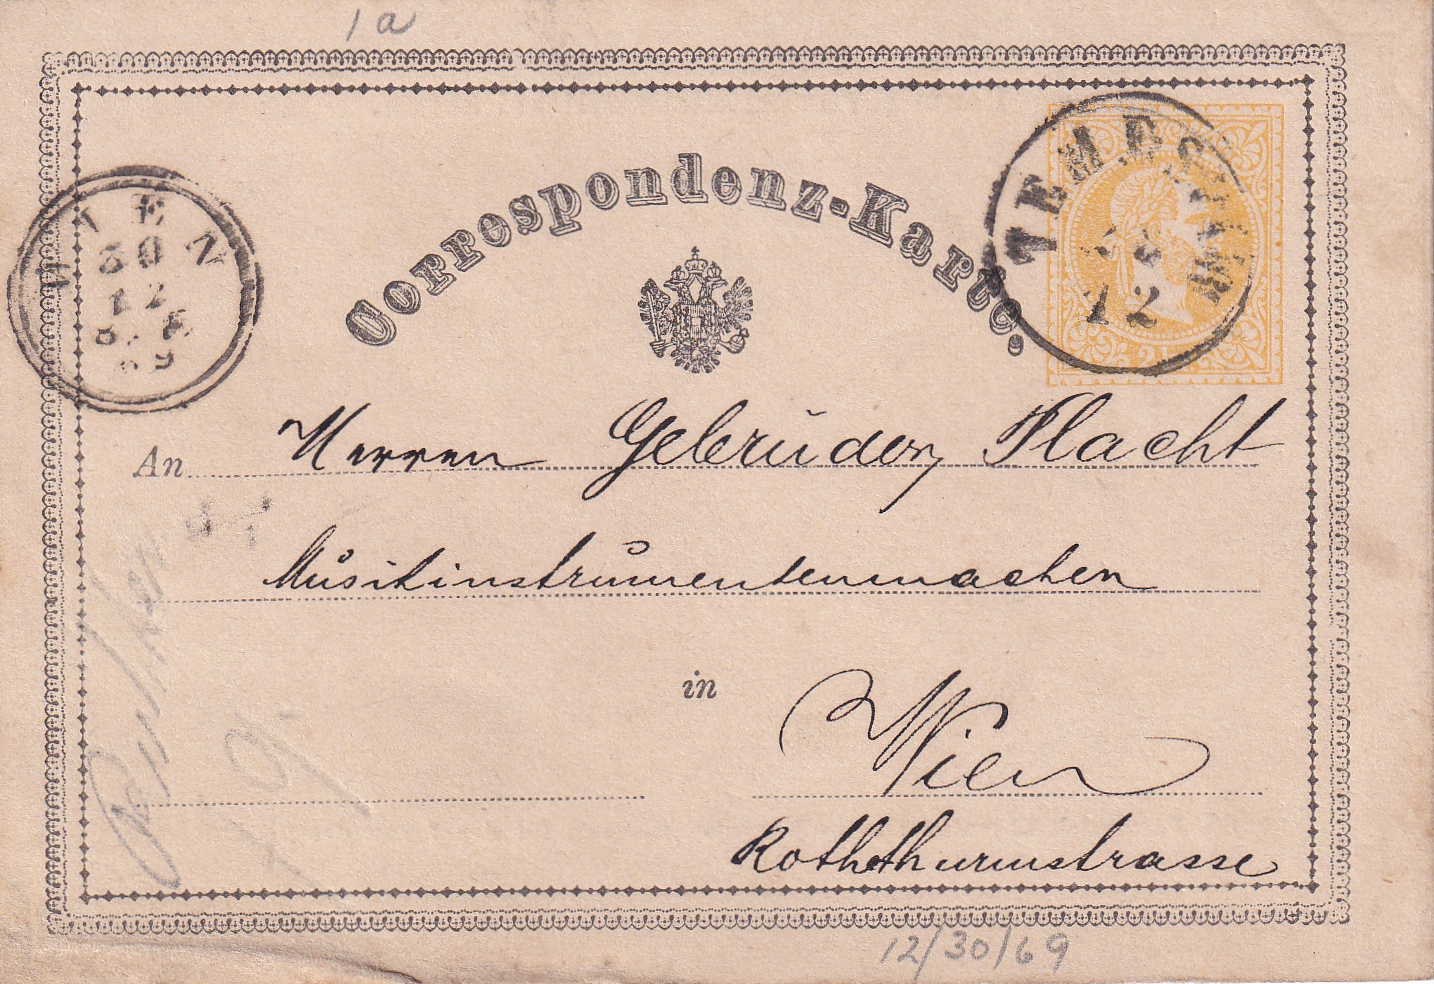 1a
Correspondenz-Karte.
TEMESVAR
12
WIEN
30
12
69
2
An Herren Gebrüder Placht
Musikinstrumentenmacher
in Wien
Roththurmstrasse
12/30/69